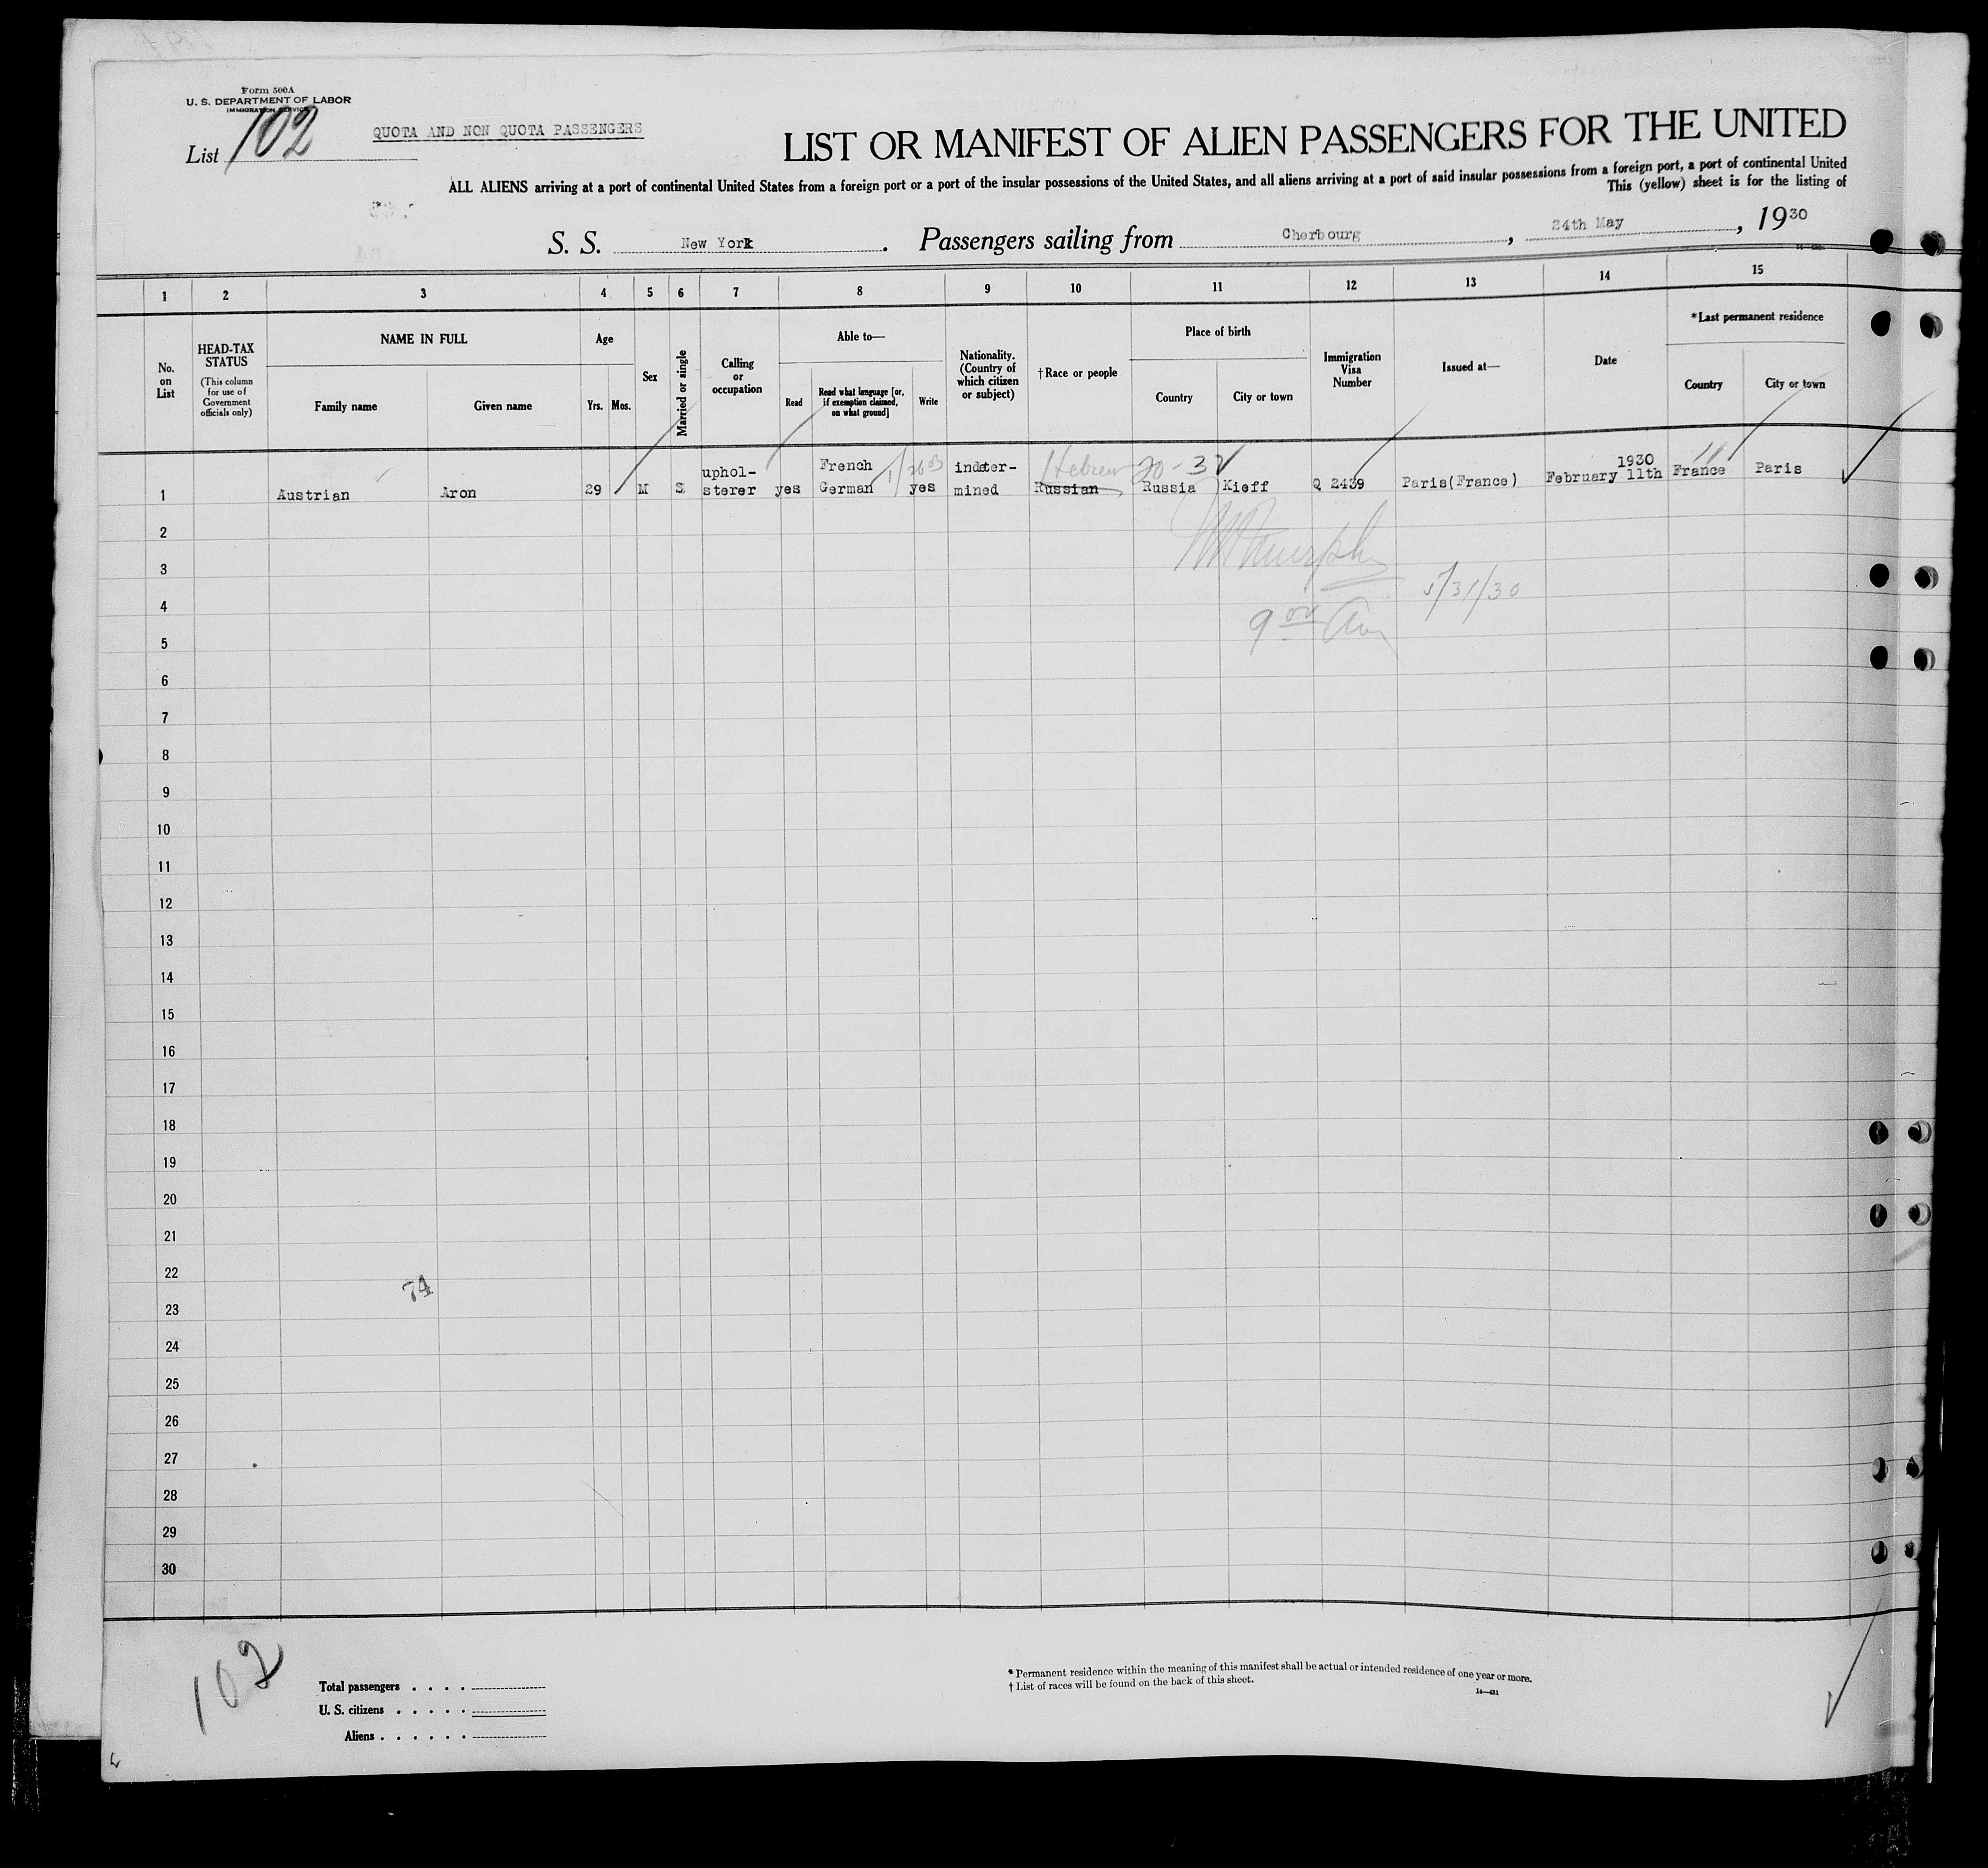 Form 500A
U. S. DEPARTMENT OF LABOR
IMMIGRATION SERVICE
List 102
QUOTA AND NON QUOTA PASSENGERS
LIST OR MANIFEST OF ALIEN PASSENGERS FOR THE UNITED
ALL ALIENS arriving at a port of continental United States from a foreign port or a port of the insular possessions of the United States, and all aliens arriving at a port of said insular possessions from a foreign port, a port of continental United
This (yellow) sheet is for the listing of
S. S. New York. Passengers sailing from Cherbourg, 24th May, 1930
1 2 3 4 5 6 7 8 9 10 11 12 13 14 15
No. on List
HEAD-TAX STATUS
(This column for use of Government officials only)
NAME IN FULL
Family name
Given name
Age
Yrs. Mos.
Sex
Married or single
Calling or occupation
Able to—
Read
Read what language [or, if exemption claimed, on what ground]
Write
Nationality. (Country of which citizen or subject)
†Race or people
Place of birth
Country
City or town
Immigration Visa Number
Issued at—
Date
*Last permanent residence
Country
City or town
1 Austrian Aron 29 M S uphol-sterer yes French German yes indeter-mined Hebrew Russian Russia Kieff Q 2439 Paris(France) February 11th 1930 France Paris
2
3
5/31/30
4
9 00 am
5
6
7
8
9
10
11
12
13
14
15
16
17
18
19
20
21
22
74
23
24
25
26
27
28
29
30
102
Total passengers . . . .
U. S. citizens . . . . .
Aliens . . . . . .
* Permanent residence within the meaning of this manifest shall be actual or intended residence of one year or more.
† List of races will be found on the back of this sheet.